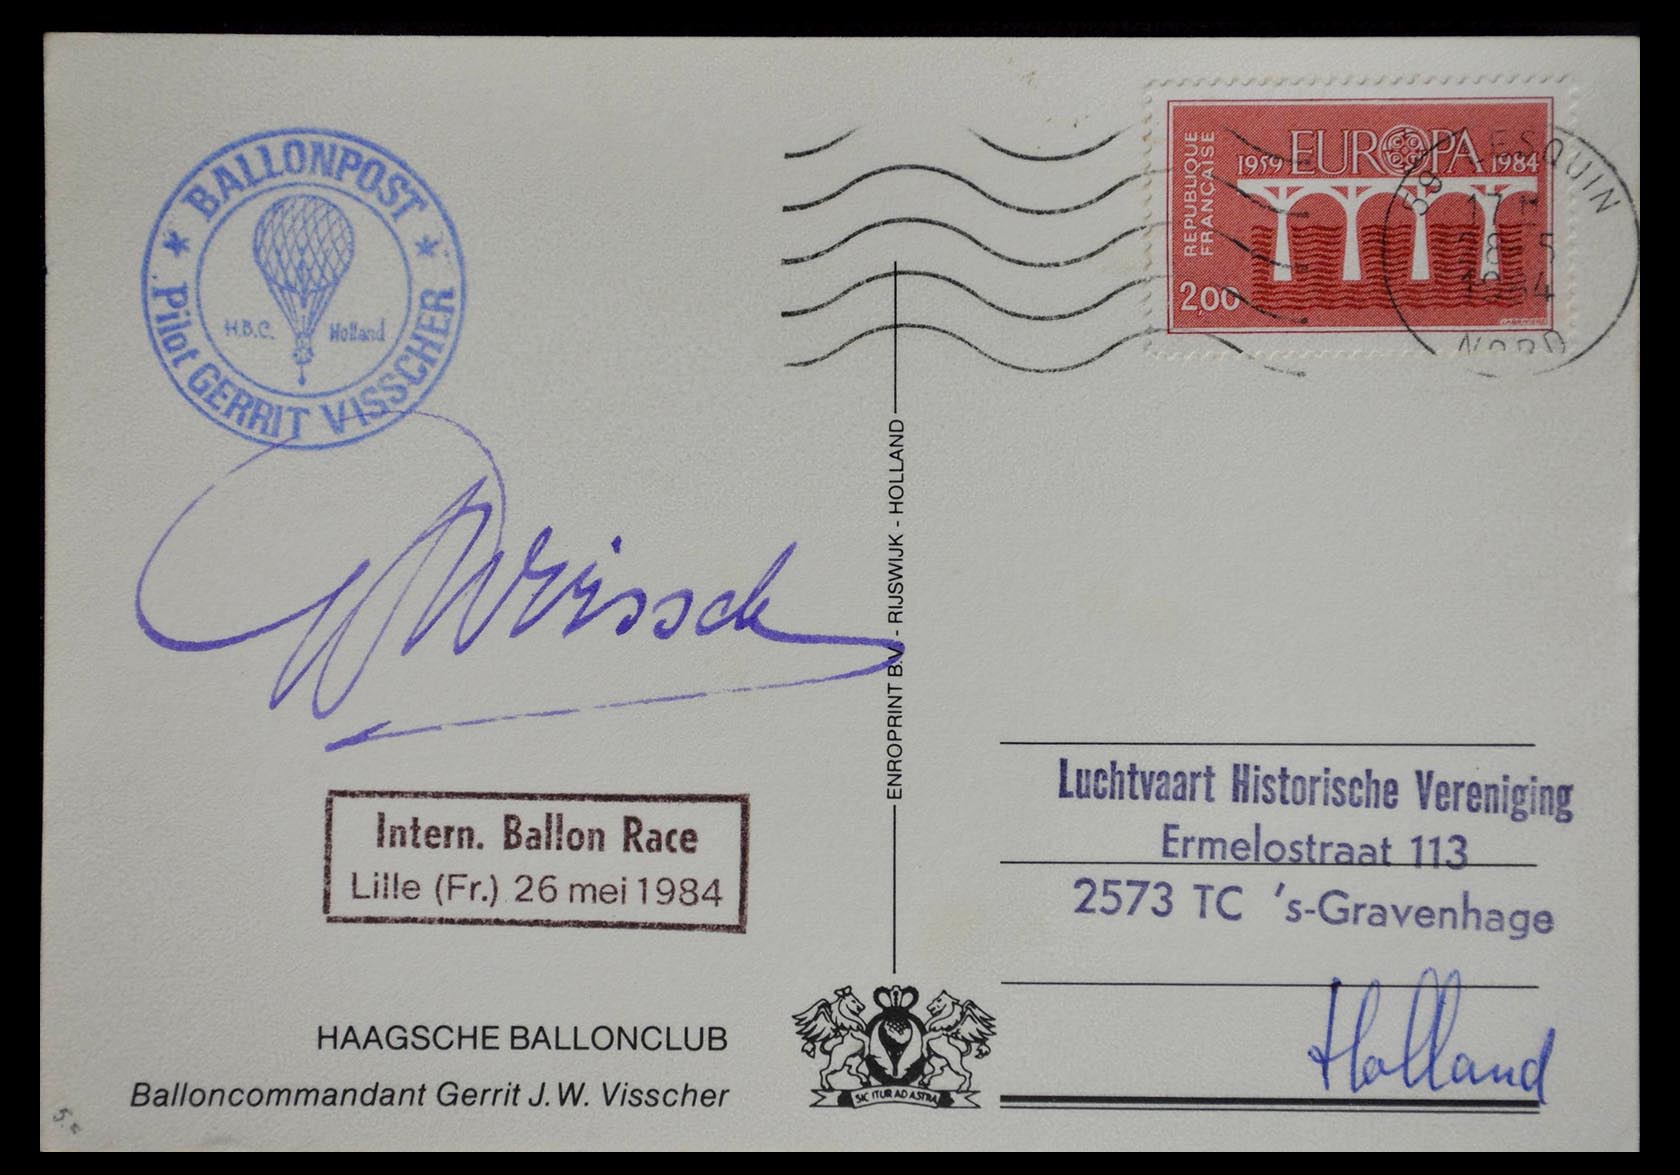 BALLONPOST
Pilot GERRIT VISSCHER
H.B.C. Holland
REPUBLIQUE
FRANÇAISE
1959 EUROPA 1984
2,00
59 LESQUIN
17 H
28 5
1984
NORD
ENROPRINT B.V. - RIJSWIJK - HOLLAND
Intern. Ballon Race
Lille (Fr.) 26 mei 1984
HAAGSCHE BALLONCLUB
Balloncommandant Gerrit J. W. Visscher
SIC ITUR AD ASTRA
Luchtvaart Historische Vereniging
Ermelostraat 113
2573 TC 's-Gravenhage
Holland